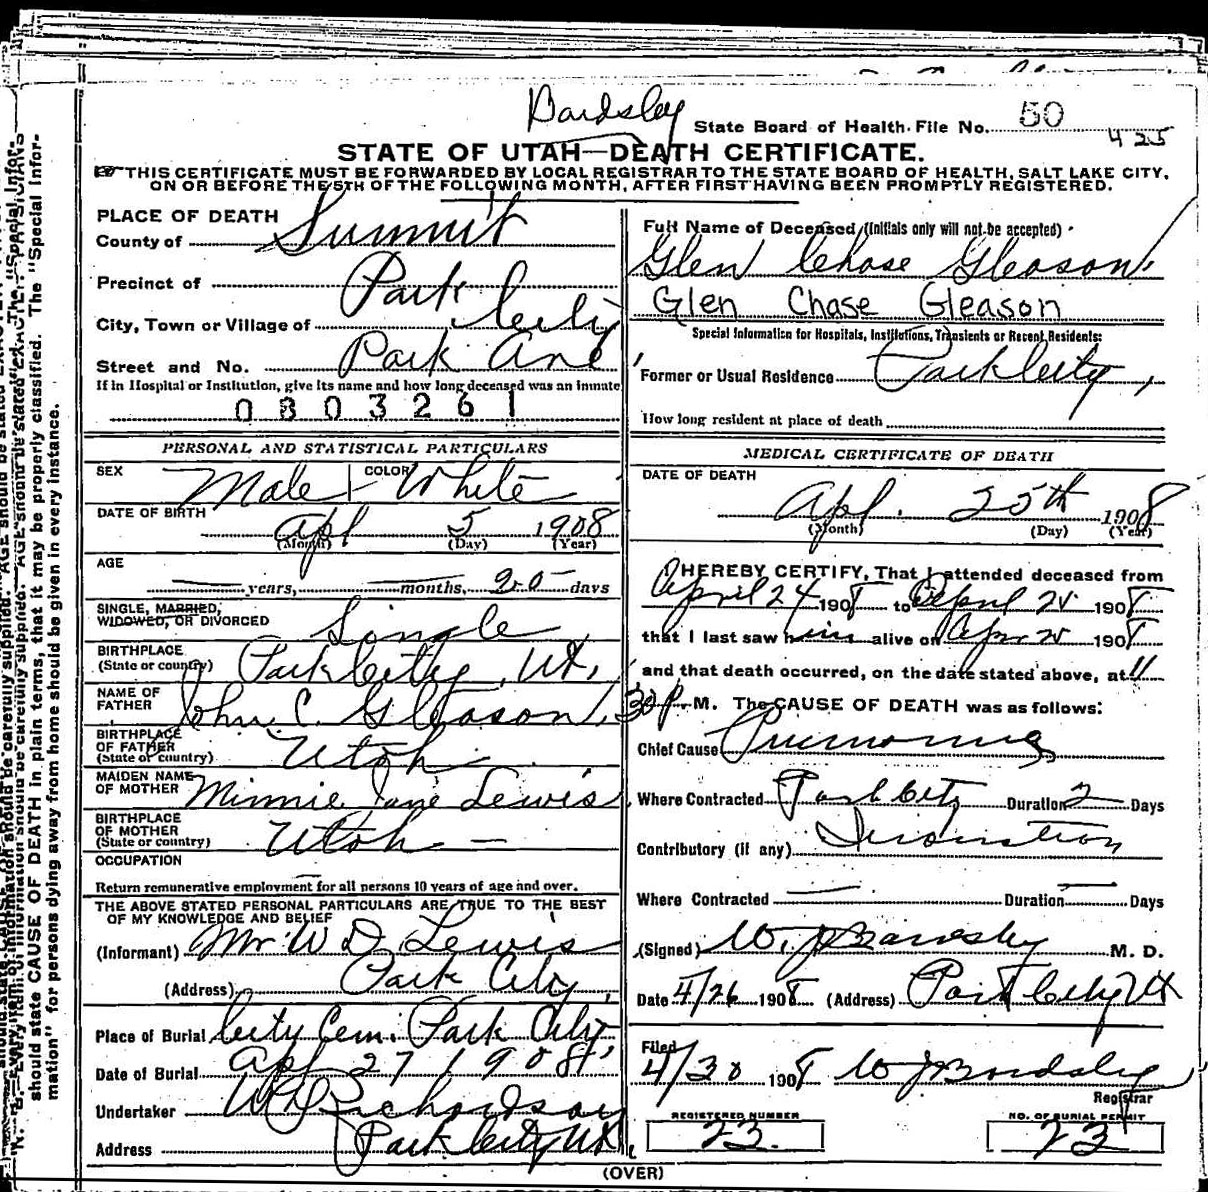 Bardsley
State Board of Health File No. 50
425
STATE OF UTAH—DEATH CERTIFICATE.
THIS CERTIFICATE MUST BE FORWARDED BY LOCAL REGISTRAR TO THE STATE BOARD OF HEALTH, SALT LAKE CITY,
ON OR BEFORE THE 5TH OF THE FOLLOWING MONTH, AFTER FIRST HAVING BEEN PROMPTLY REGISTERED.
PLACE OF DEATH
County of Summit
Precinct of Park City
City, Town or Village of
Street and No. Park Ave
If in Hospital or Institution, give its name and how long deceased was an inmate
0803261
Full Name of Deceased (Initials only will not be accepted)
Glen Chase Gleason
Glen Chase Gleason
Special Information for Hospitals, Institutions, Transients or Recent Residents:
Former or Usual Residence Park City,
How long resident at place of death
PERSONAL AND STATISTICAL PARTICULARS
SEX Male COLOR White
DATE OF BIRTH
Apl 5 1908
(Month) (Day) (Year)
AGE
years, months, 20 days
SINGLE, MARRIED,
WIDOWED, OR DIVORCED Single
BIRTHPLACE
(State or country) Park City, Ut,
NAME OF
FATHER John C. Gleason
BIRTHPLACE
OF FATHER
(State or country) Utah
MAIDEN NAME
OF MOTHER Minnie Jane Lewis
BIRTHPLACE
OF MOTHER
(State or country) Utah
OCCUPATION
Return remunerative employment for all persons 10 years of age and over.
THE ABOVE STATED PERSONAL PARTICULARS ARE TRUE TO THE BEST
OF MY KNOWLEDGE AND BELIEF
(Informant) Mr W D Lewis
(Address) Park City,
Place of Burial City Cem. Park City
Date of Burial Apl 27 1908
Undertaker Richardson
Address Park City Ut.
MEDICAL CERTIFICATE OF DEATH
DATE OF DEATH
Apl. 25th 1908
(Month) (Day) (Year)
I HEREBY CERTIFY, That I attended deceased from
April 24 1908 to April 25 1908
that I last saw him alive on Apr 25 1908
and that death occurred, on the date stated above, at 11
30 P. M. The CAUSE OF DEATH was as follows:
Chief Cause Pneumonia
Where Contracted Park City Duration 2 Days
Contributory (if any) Inanition
Where Contracted Duration Days
(Signed) W. J Bardsley M. D.
Date 4/26 1908 (Address) Park City Ut
Filed
4/30 1908 W J Bardsley
Registrar
REGISTERED NUMBER
23.
NO. OF BURIAL PERMIT
23
(OVER)
should state CAUSE OF DEATH in plain terms, that it may be properly classified. The "Special Infor-
mation" for persons dying away from home should be given in every instance.